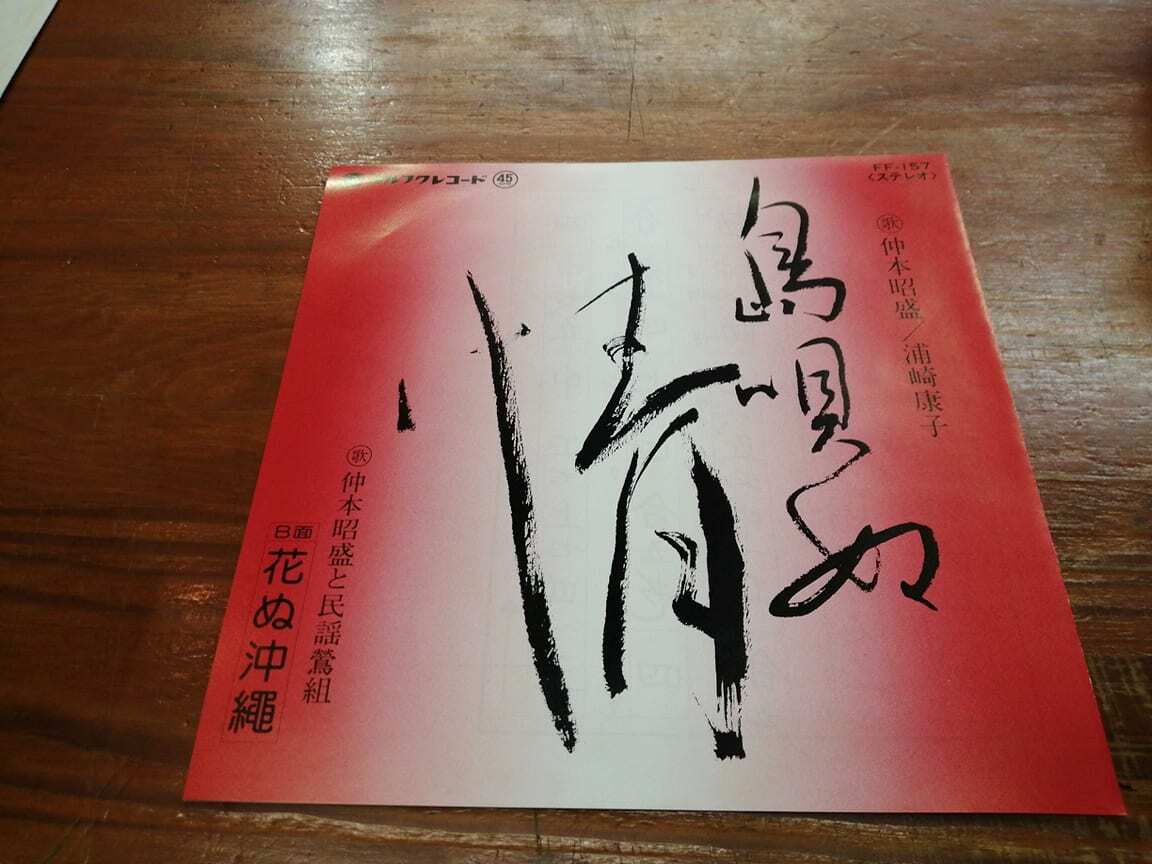 ルフクレコード 45
FF-157
〈ステレオ〉
歌 仲本昭盛／浦崎康子
島唄ぬ
情
歌 仲本昭盛と民謡鶯組
B面
花ぬ沖縄